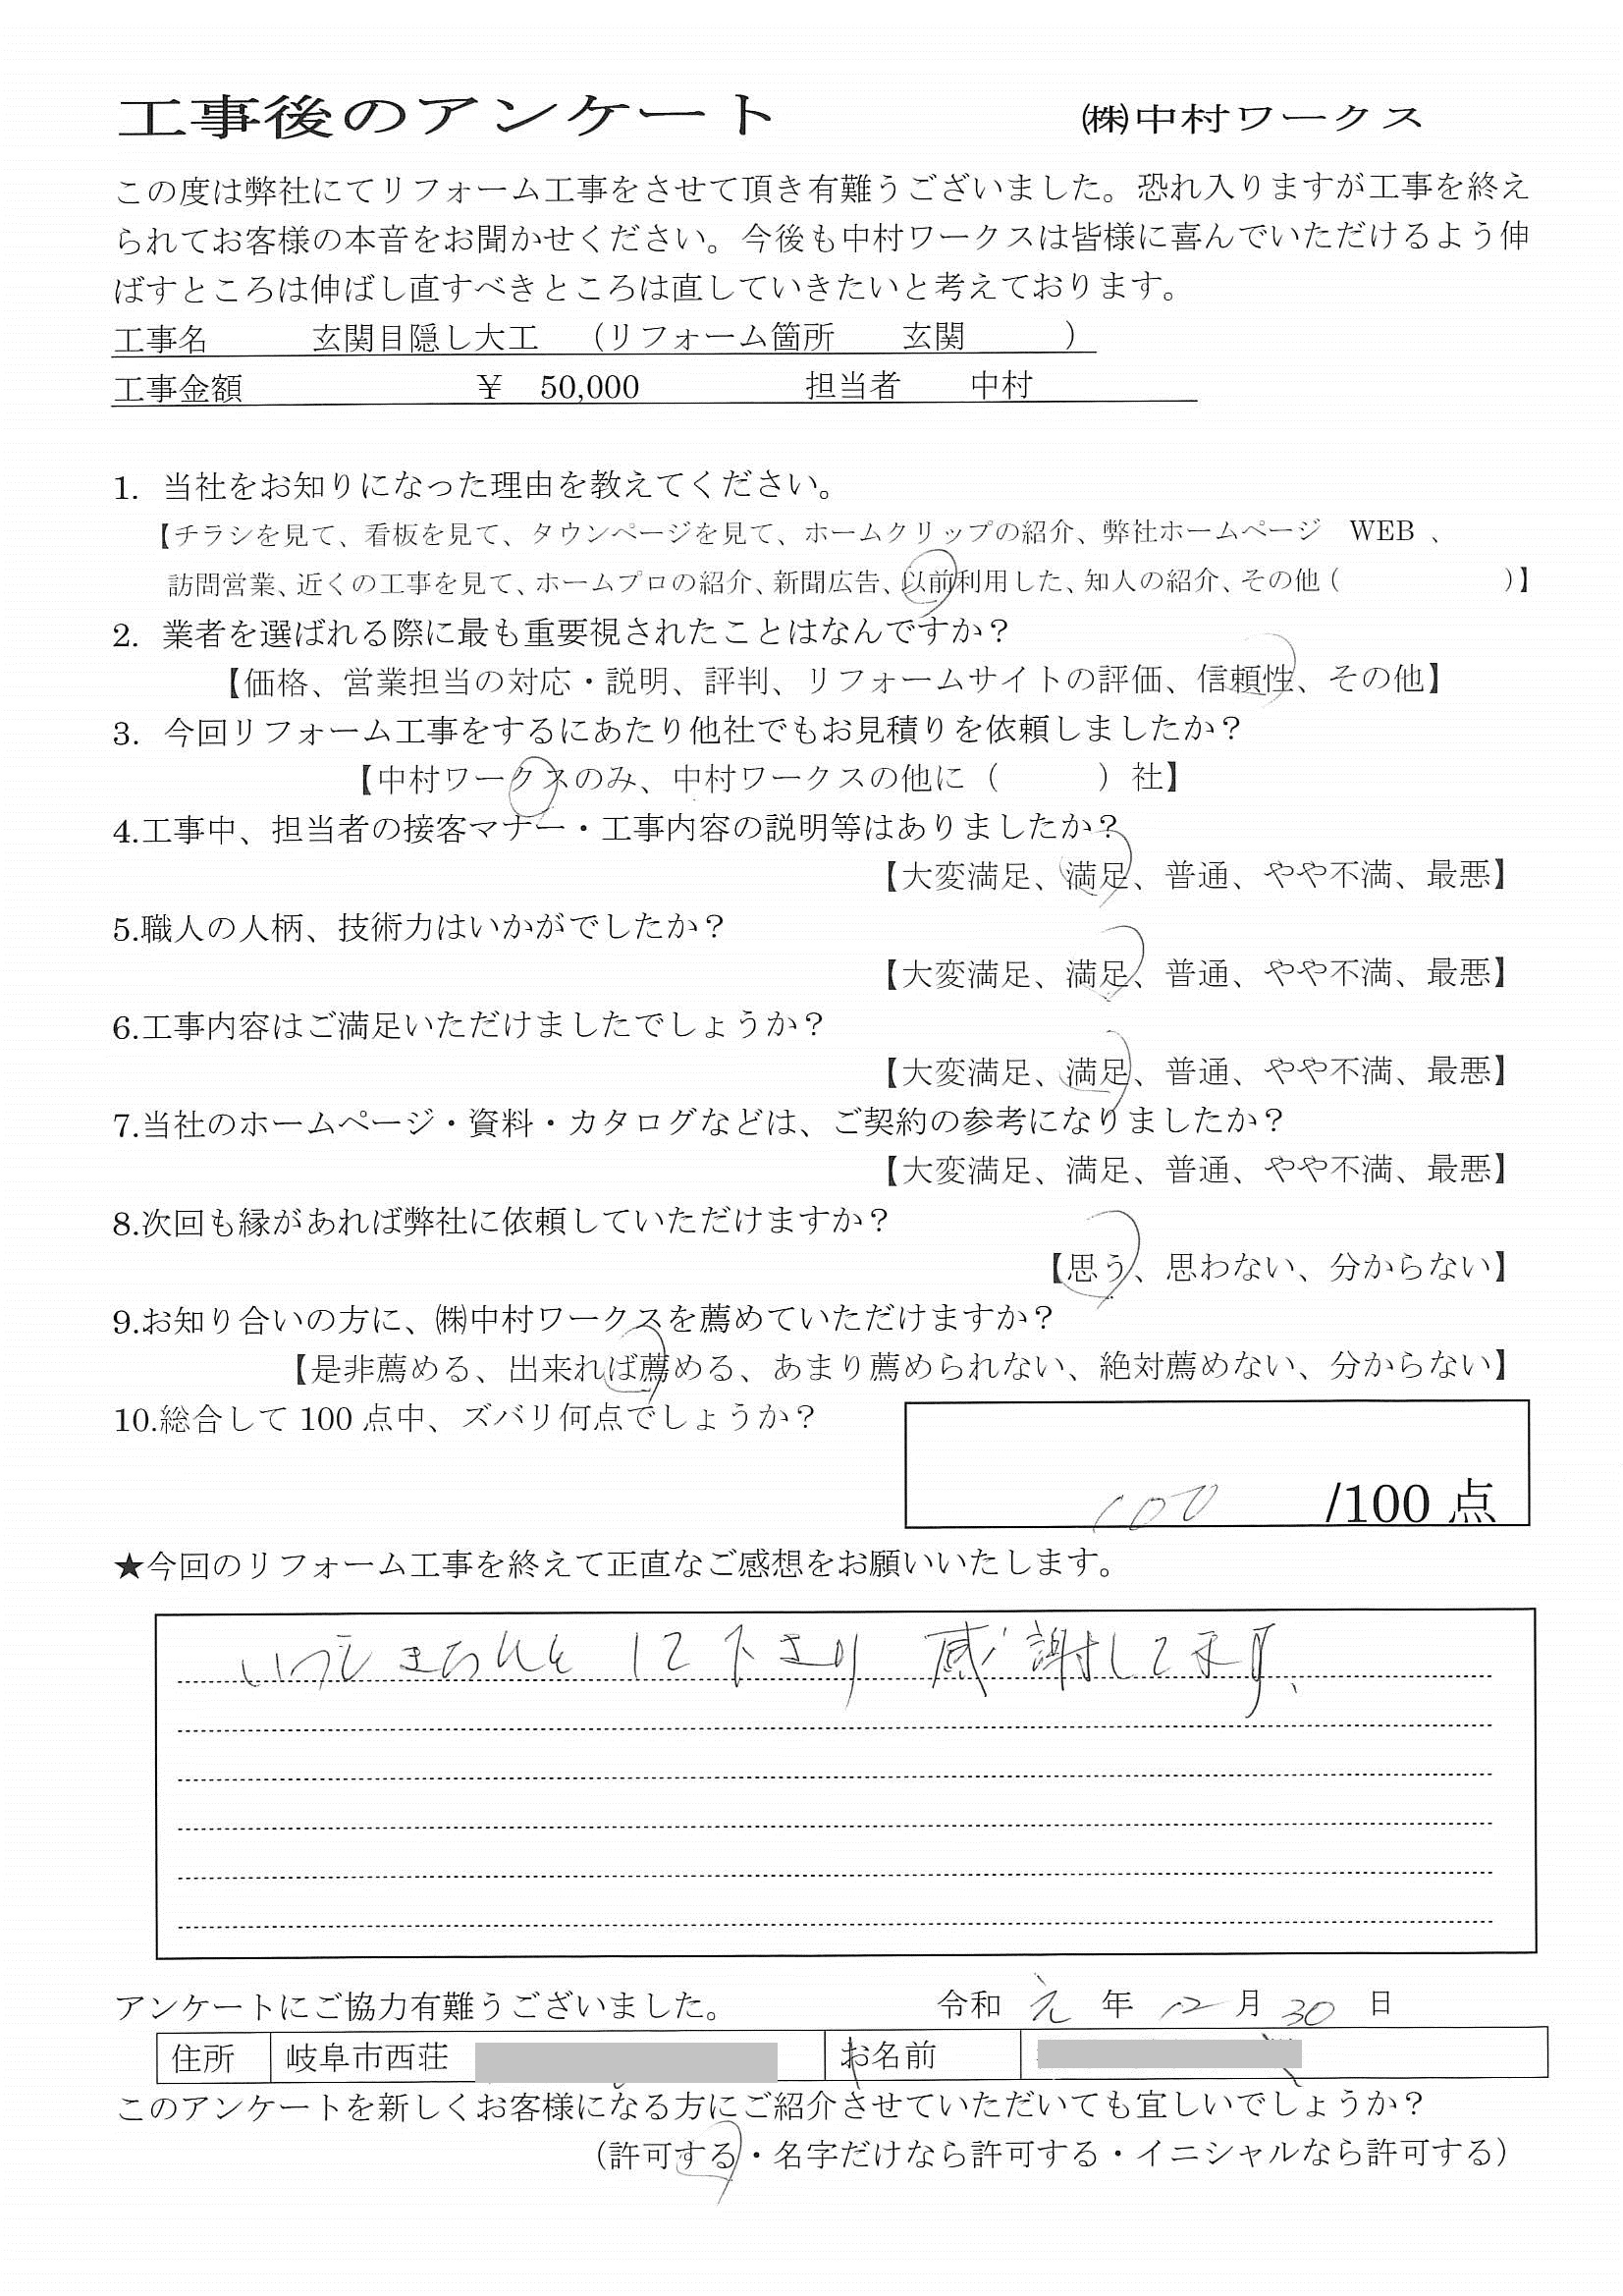 工事後のアンケート　㈱中村ワークス
この度は弊社にてリフォーム工事をさせて頂き有難うございました。恐れ入りますが工事を終え
られてお客様の本音をお聞かせください。今後も中村ワークスは皆様に喜んでいただけるよう伸
ばすところは伸ばし直すべきところは直していきたいと考えております。
工事名　玄関目隠し大工　（リフォーム箇所　玄関　）
工事金額　￥ 50,000　担当者　中村
1. 当社をお知りになった理由を教えてください。
【チラシを見て、看板を見て、タウンページを見て、ホームクリップの紹介、弊社ホームページ　WEB 、
訪問営業、近くの工事を見て、ホームプロの紹介、新聞広告、以前利用した、知人の紹介、その他（　）】
2. 業者を選ばれる際に最も重要視されたことはなんですか？
【価格、営業担当の対応・説明、評判、リフォームサイトの評価、信頼性、その他】
3. 今回リフォーム工事をするにあたり他社でもお見積りを依頼しましたか？
【中村ワークスのみ、中村ワークスの他に（　）社】
4.工事中、担当者の接客マナー・工事内容の説明等はありましたか？
【大変満足、満足、普通、やや不満、最悪】
5.職人の人柄、技術力はいかがでしたか？
【大変満足、満足、普通、やや不満、最悪】
6.工事内容はご満足いただけましたでしょうか？
【大変満足、満足、普通、やや不満、最悪】
7.当社のホームページ・資料・カタログなどは、ご契約の参考になりましたか？
【大変満足、満足、普通、やや不満、最悪】
8.次回も縁があれば弊社に依頼していただけますか？
【思う、思わない、分からない】
9.お知り合いの方に、㈱中村ワークスを薦めていただけますか？
【是非薦める、出来れば薦める、あまり薦められない、絶対薦めない、分からない】
10.総合して 100 点中、ズバリ何点でしょうか？
100 /100 点
★今回のリフォーム工事を終えて正直なご感想をお願いいたします。
いつもきちんと して下さり 感謝してます、
アンケートにご協力有難うございました。　令和 元 年 12 月 30 日
住所　岐阜市西荘　お名前
このアンケートを新しくお客様になる方にご紹介させていただいても宜しいでしょうか？
（許可する・名字だけなら許可する・イニシャルなら許可する）